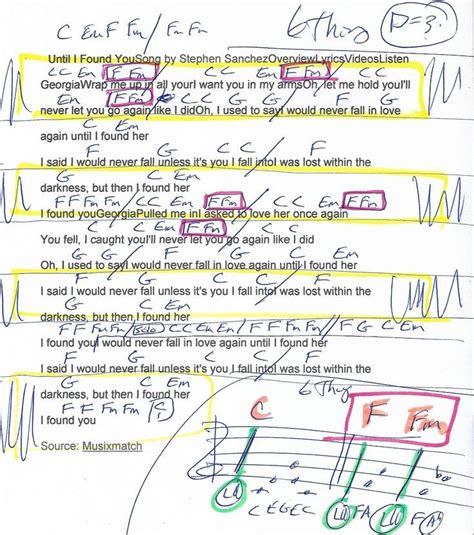 C Em F Fm / Fm Fm 6 Thing P=?
Until I Found YouSong by Stephen SanchezOverviewLyricsVideosListen
C C Em F Fm C C Em F Fm
GeorgiaWrap me up in all yourI want you in my armsOh, let me hold you'll
Em F Fm C C G G F G
never let you go again like I didOh, I used to sayI would never fall in love
again until I found her
F G C F
I said I would never fall unless it's you I fall intoI was lost within the
G C Em
darkness, but then I found her
F F Fm Fm C C Em F Fm C C Em F Fm
I found youGeorgiaPulled me inI asked to love her once again
C C Em F Fm C C
You fell, I caught youI'll never let you go again like I did
G G F G C Em
Oh, I used to sayI would never fall in love again until I found her
F G C F
I said I would never fall unless it's you I fall intoI was lost within the
G C Em
darkness, but then I found her
F F Fm Fm / Solo / C C Em Em / F F Fm Fm // F G C Em
I found youI would never fall in love again until I found her
F G C F
I said I would never fall unless it's you I fall intoI was lost within the
G C Em
darkness, but then I found her
F F Fm Fm C
I found you
Source: Musixmatch
C F Fm
C E G E C F A F A